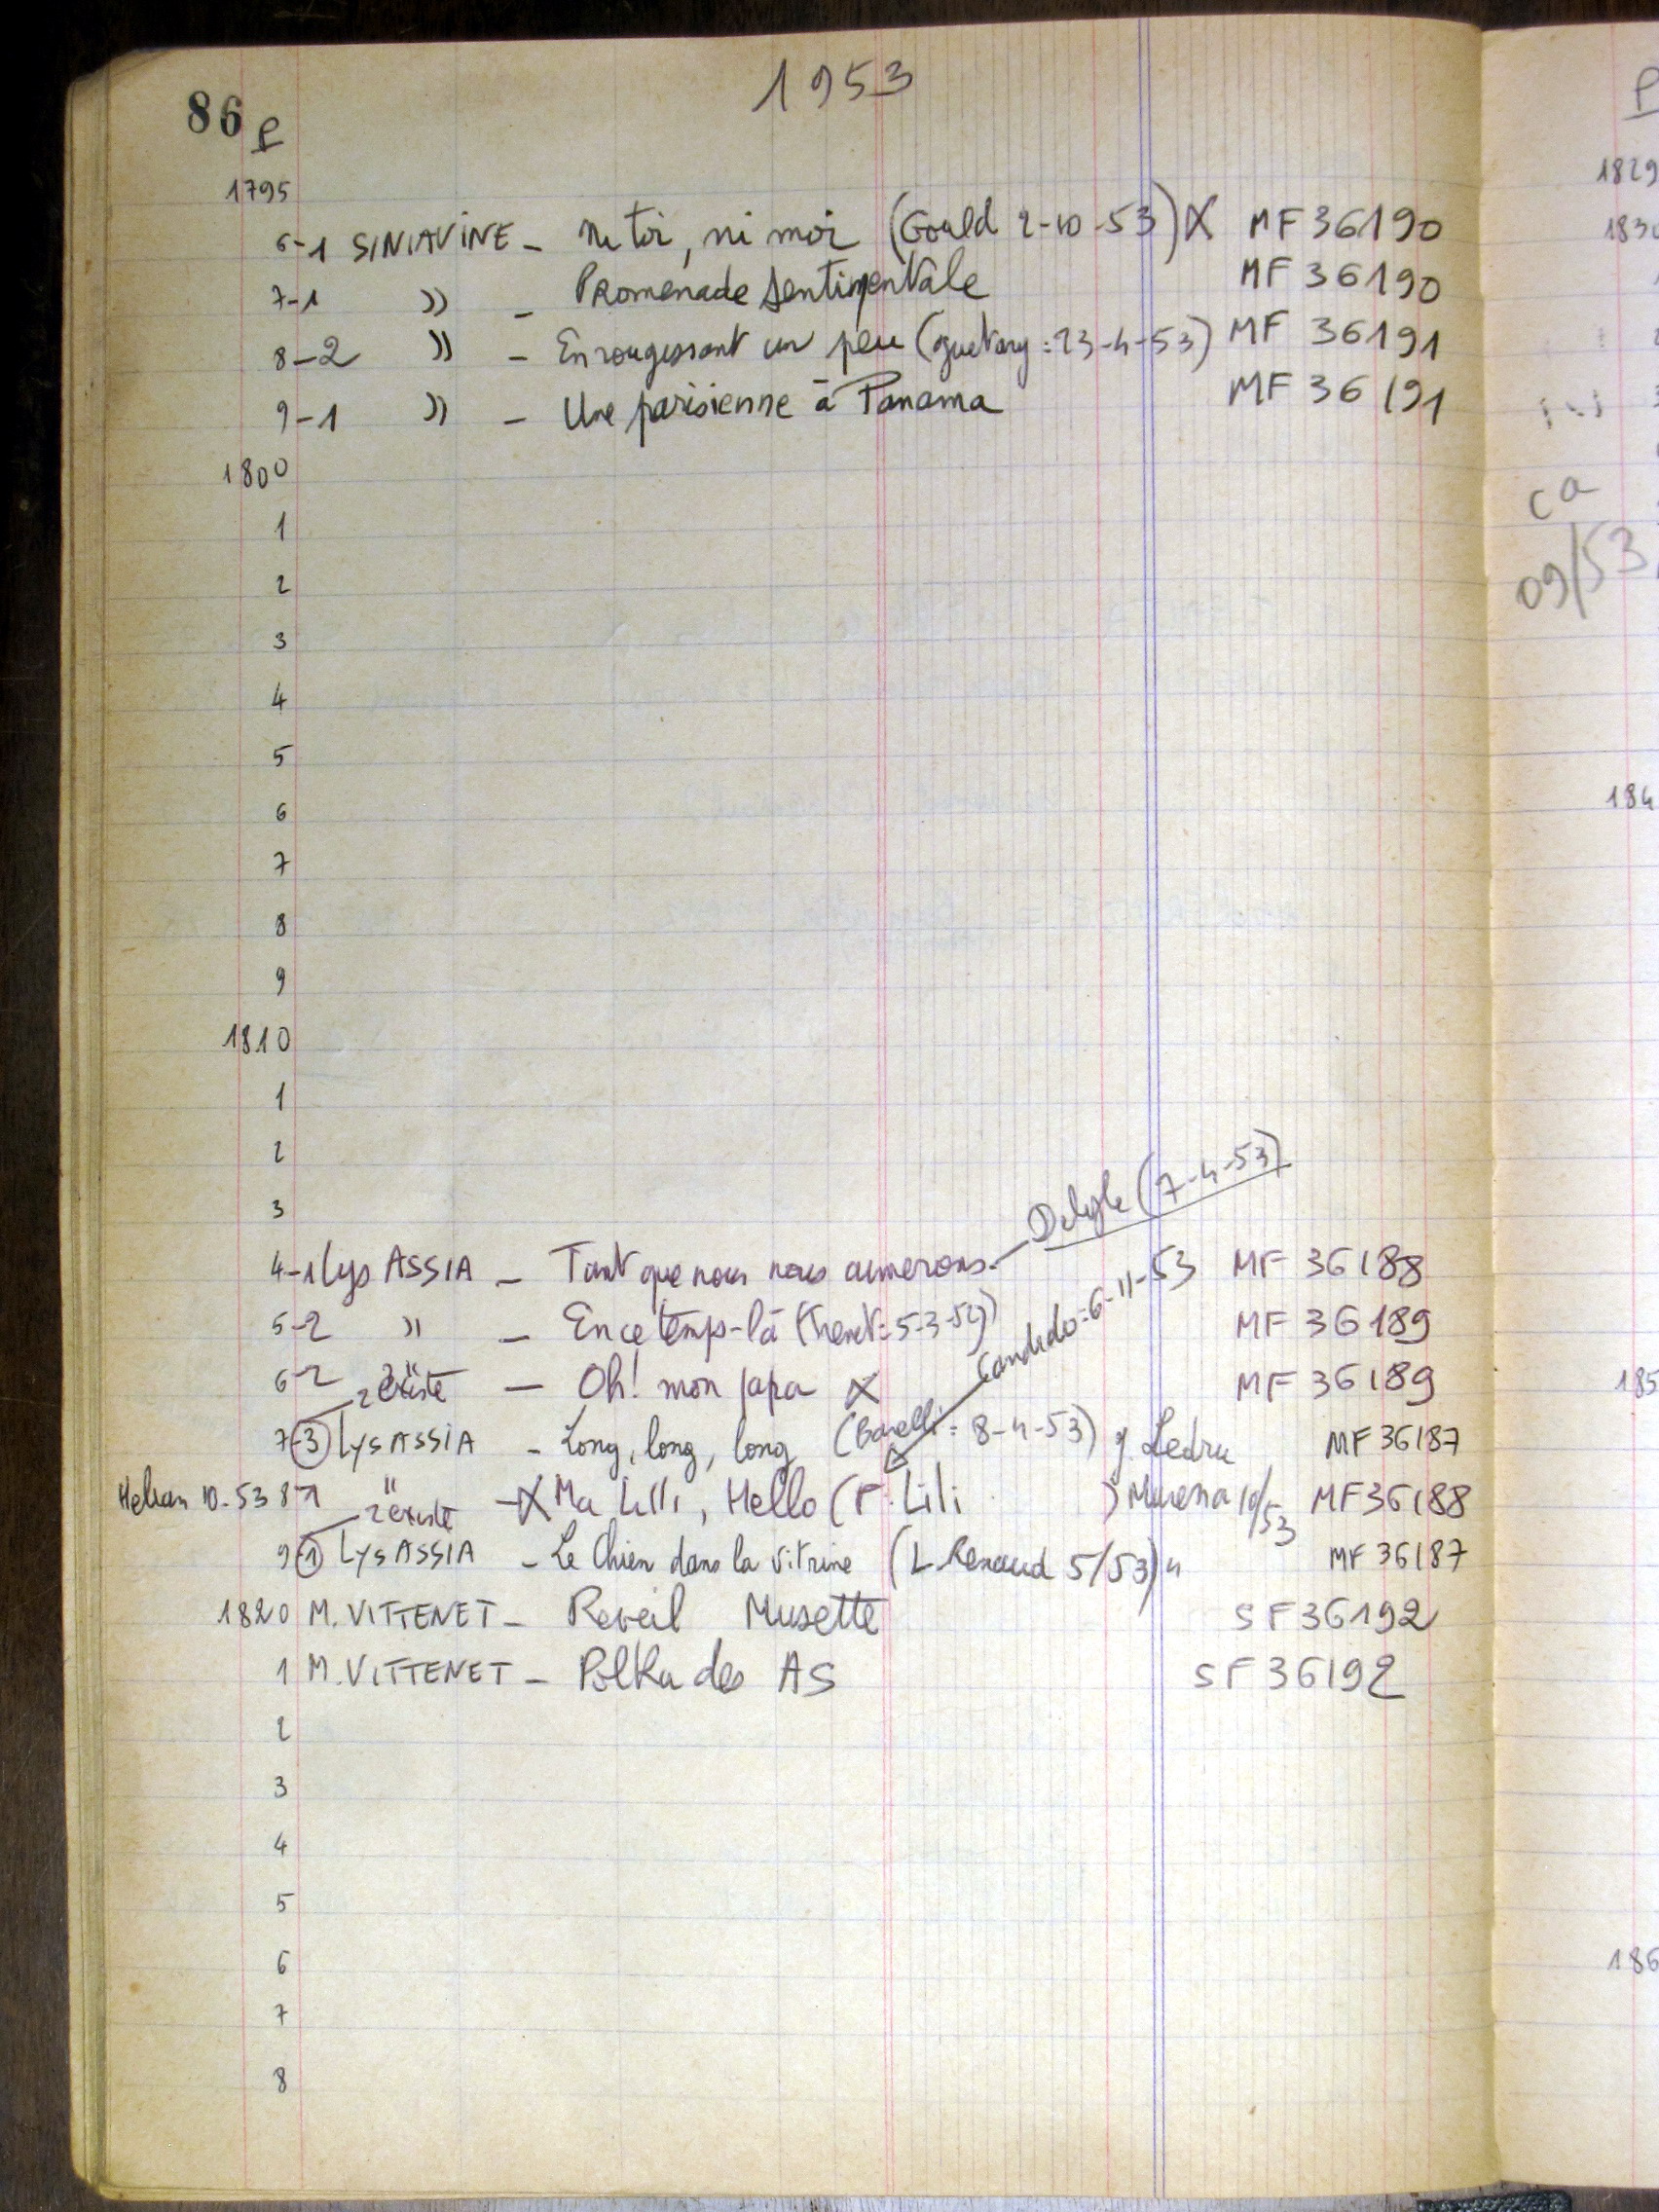 1953
86 P
1795
6-1 SINIAVINE - Ni toi, ni moi (Gould 2-10-53) X MF 36190
7-1 " - Promenade sentimentale MF 36190
8-2 " - En rougissant un peu (guetary: 23-4-53) MF 36191
9-1 " - Une parisienne à Panama MF 36191
1800
1
2
3
4
5
6
7
8
9
1810
1
2
3
(7-4-53)
4-1 Lys ASSIA - Tant que nous nous aimerons MF 36188
Candido: 6-11-53
5-2 " - En ce temps-là 5-3-54) MF 36189
6-2 " - Oh! mon papa X MF 36189
2 existe
7-3 Lys ASSIA - Long, long, long (Barelli: 8-4-53) J. Ledru MF 36187
Helian 10-53 8-1 " - X Ma Lilli, Hello (F. Lili ) Murena 10/53 MF 36188
2 existe
9-1 Lys ASSIA - Le Chien dans la vitrine (L. Renaud 5/53) " MF 36187
1820 M. VITTENET - Reveil Musette SF 36192
1 M. VITTENET - Polka des AS SF 36192
2
3
4
5
6
7
8
P
1829
183
ca
09/53
184
185
186